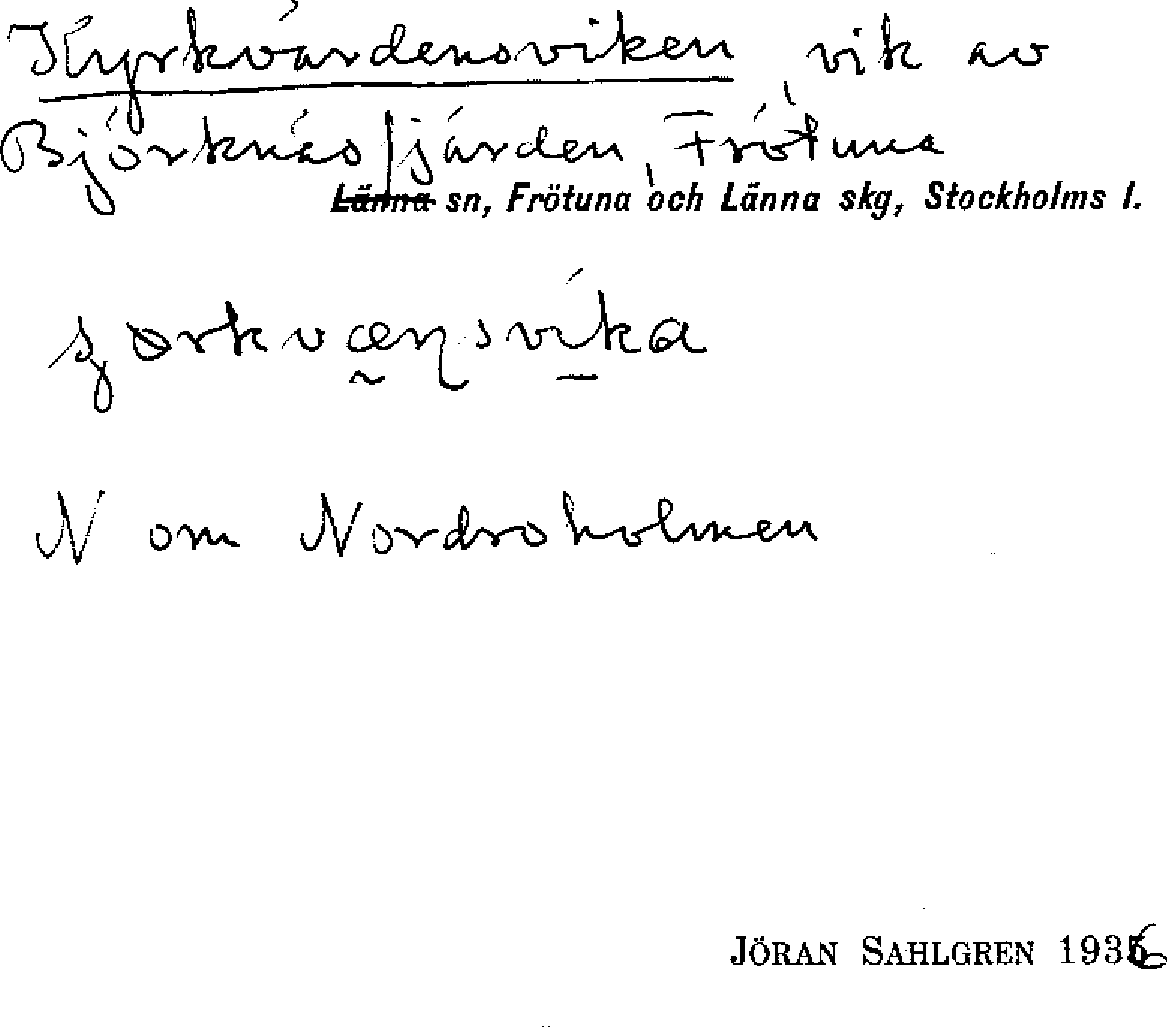 Kyrkvärdensviken, vik av
Björknäsfjärden, Frötuna
Länna sn, Frötuna och Länna skg, Stockholms l.
N om Nordroholmen
JÖRAN SAHLGREN 1936